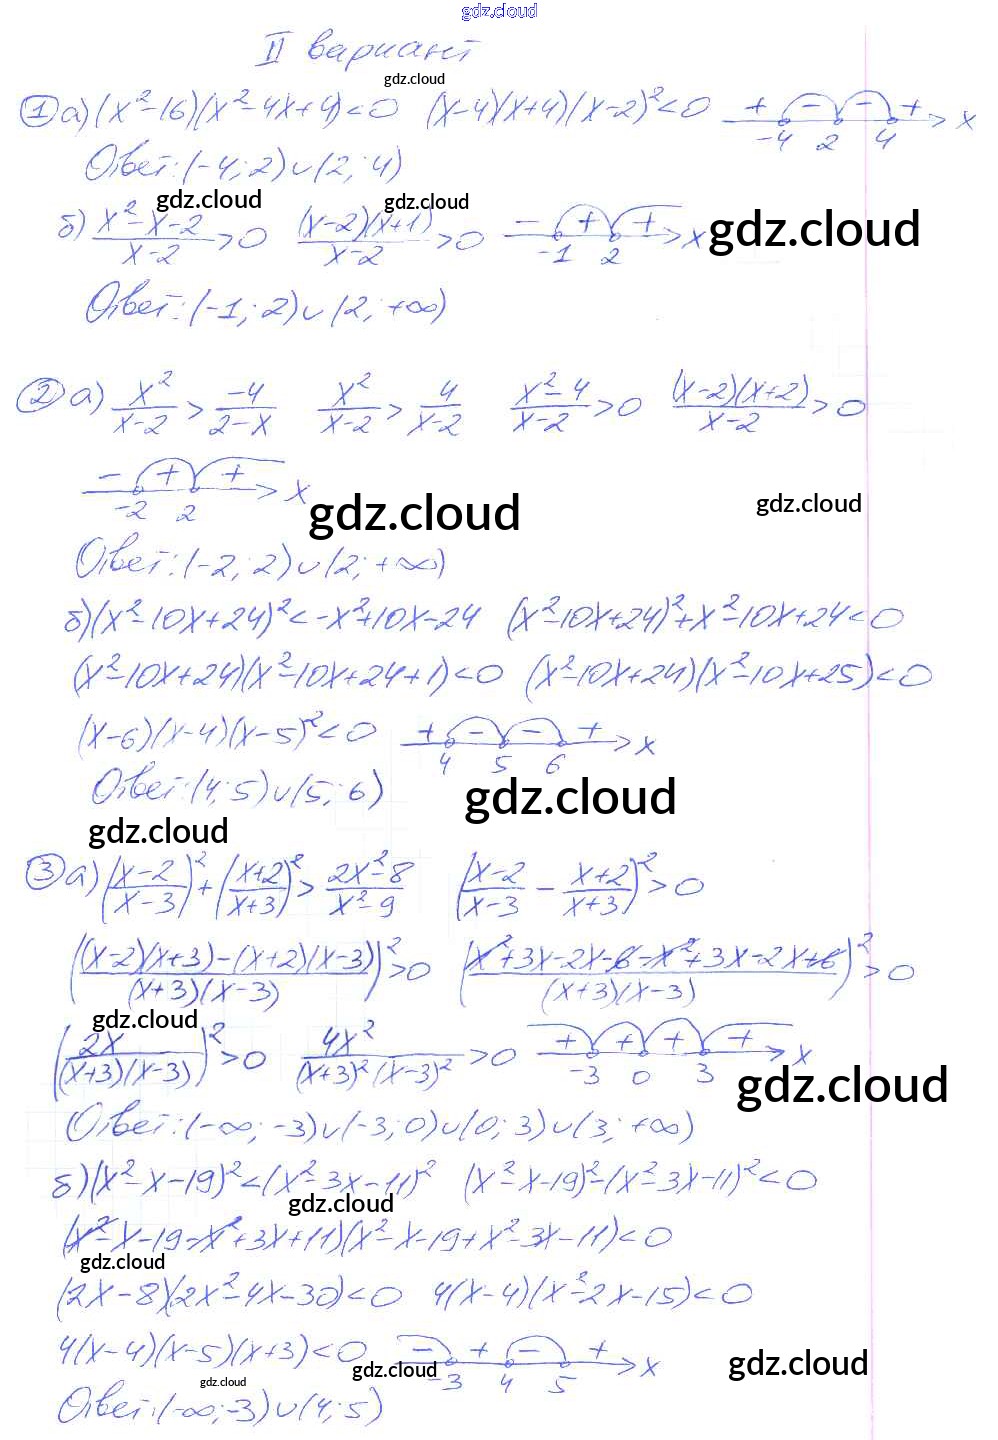 gdz.cloud
II вариант
gdz.cloud
① а) (x²-16)(x²-4x+4)<0 (x-4)(x+4)(x-2)²<0 + - - + -4 2 4 x
Ответ: (-4; 2)∪(2; 4)
gdz.cloud gdz.cloud
б) (x²-x-2)/(x-2)>0 ((x-2)(x+1))/(x-2)>0 - + + -1 2 x gdz.cloud
Ответ: (-1; 2)∪(2; +∞)
② а) x²/(x-2) > -4/(2-x) x²/(x-2) > 4/(x-2) (x²-4)/(x-2)>0 ((x-2)(x+2))/(x-2)>0
- + + -2 2 x
gdz.cloud gdz.cloud
Ответ: (-2; 2)∪(2; +∞)
б) (x²-10x+24)²<-x²+10x-24 (x²-10x+24)²+x²-10x+24<0
(x²-10x+24)(x²-10x+24+1)<0 (x²-10x+24)(x²-10x+25)<0
(x-6)(x-4)(x-5)²<0 + - - + 4 5 6 x
Ответ: (4; 5)∪(5; 6)
gdz.cloud
gdz.cloud
③ а) ((x-2)/(x-3))²+((x+2)/(x+3))²>(2x²-8)/(x²-9) ((x-2)/(x-3) - (x+2)/(x+3))²>0
(((x-2)(x+3)-(x+2)(x-3))/((x+3)(x-3)))²>0 ((x²+3x-2x-6-x²+3x-2x+6)/((x+3)(x-3)))²>0
gdz.cloud
(2x/((x+3)(x-3)))²>0 4x²/((x+3)²(x-3)²)>0 + + + + -3 0 3 x
gdz.cloud
Ответ: (-∞; -3)∪(-3; 0)∪(0; 3)∪(3; +∞)
б) (x²-x-19)²<(x²-3x-11)² (x²-x-19)²-(x²-3x-11)²<0
gdz.cloud
(x²-x-19-x²+3x+11)(x²-x-19+x²-3x-11)<0
gdz.cloud
(2x-8)(2x²-4x-30)<0 4(x-4)(x²-2x-15)<0
4(x-4)(x-5)(x+3)<0 - + - + -3 4 5 x
gdz.cloud gdz.cloud
gdz.cloud
Ответ: (-∞; -3)∪(4; 5)